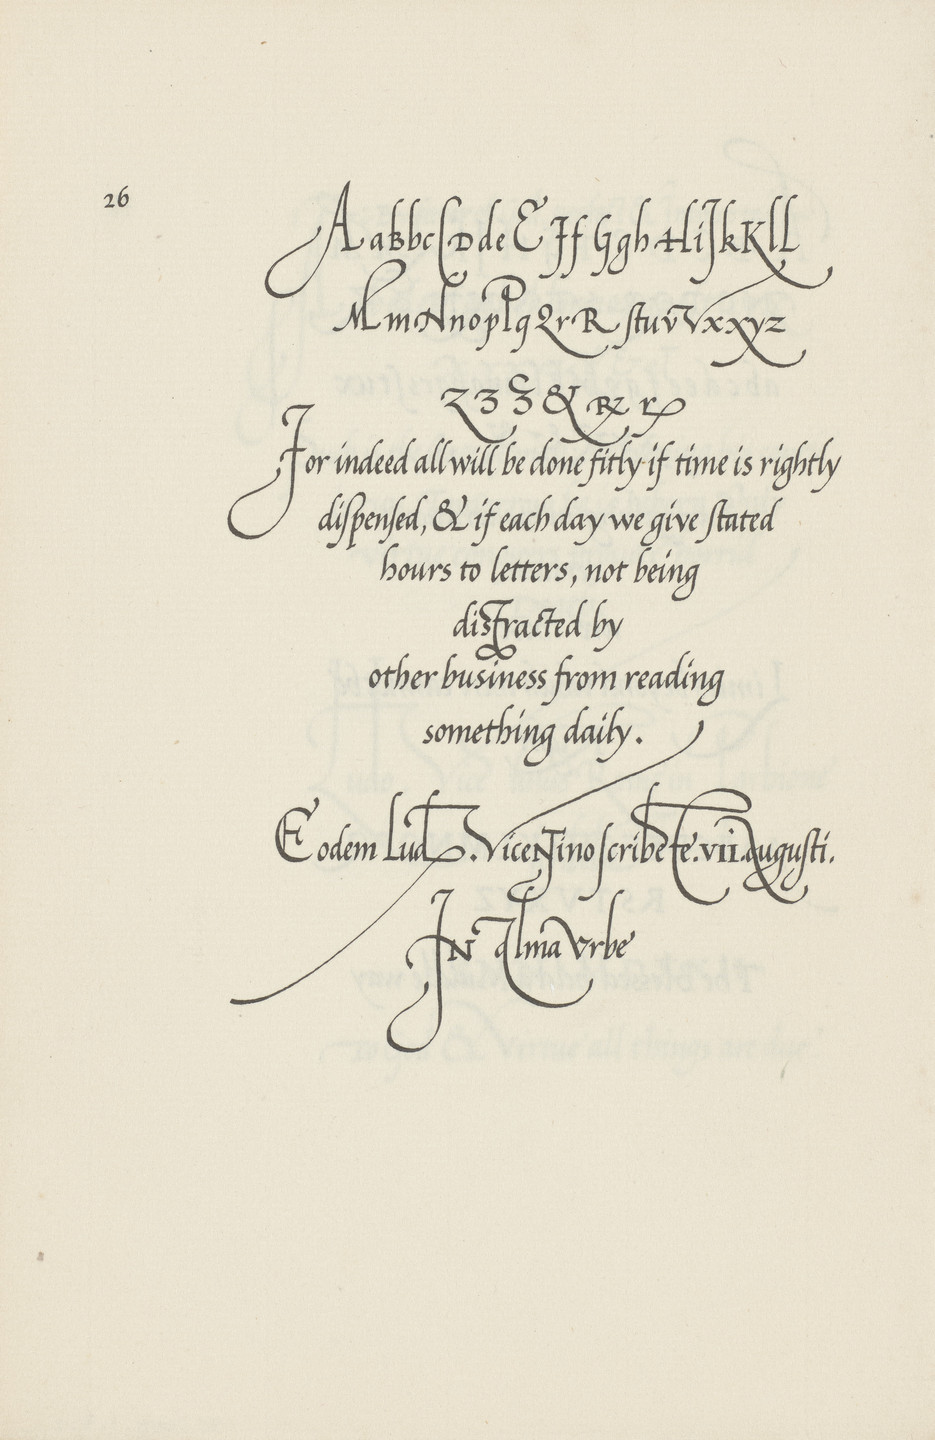 26
A a B b c C D d e E F f G g h H i J k K l L
M m N n o p P q Q r R ſtu v V x x y z
Z 3 Ȝ & ꝶ rp
For indeed all will be done fitly if time is rightly
diſpenſed, & if each day we give ſtated
hours to letters, not being
distracted by
other business from reading
something daily.
Eodem Lud. Vicentino ſcribente. VII. Auguſti.
IN Alma Vrbe